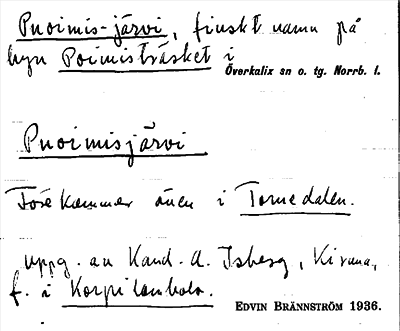 Puoimis-järvi, finskt namn på
byn Poimisträsket i
Överkalix sn o. tg. Norrb. l.
Puoimisjärvi
Förekommer även i Tornedalen.
Uppg. av Kand. A. Isberg, Kiruna,
f. i Korpilombolo.
EDVIN BRÄNNSTRÖM 1936.